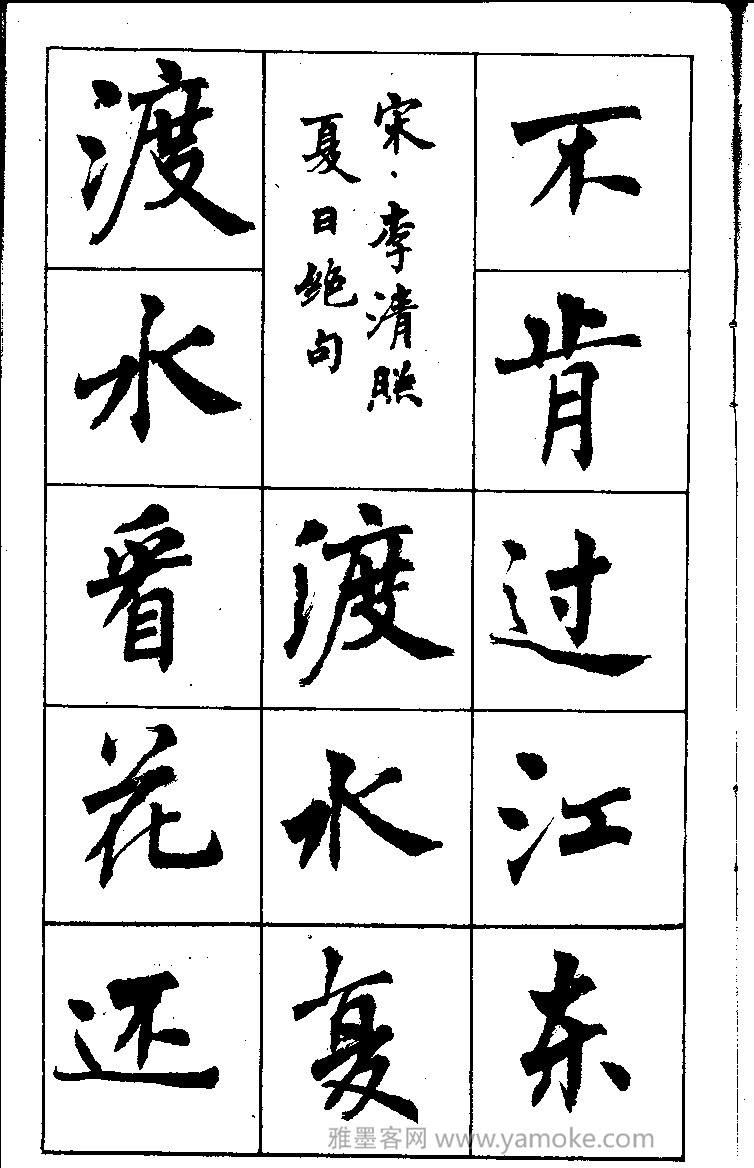 不肯过江东
宋·李清照
夏日绝句
渡水复
渡水看花还
雅墨客网 www.yamoke.com